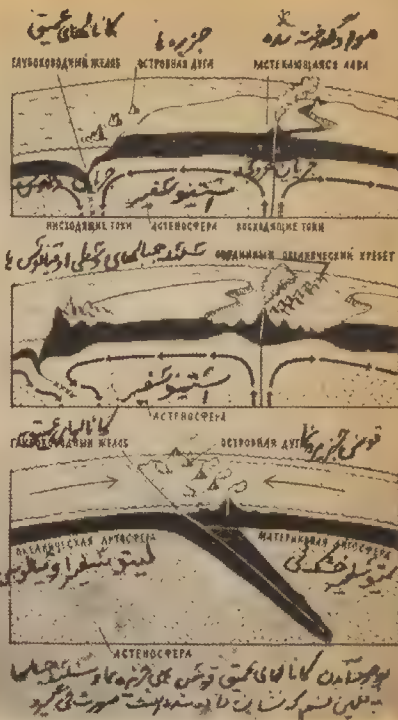 کانالهای عمیق جزیره ها مواد گداخته شده
ГЛУБОКОВОДНЫЙ ЖЕЛОБ ОСТРОВНАЯ ДУГА РАСТЕКАЮЩАЯСЯ ЛАВА
جریان
استینوسفیر
НИСХОДЯЩИЕ ТОКИ АСТЕНОСФЕРА ВОСХОДЯЩИЕ ТОКИ
سلسله جبالهای وسطی اوقیانوس ها СРЕДИННЫЙ ОКЕАНИЧЕСКИЙ ХРЕБЕТ
استینوسفیر
АСТЕНОСФЕРА
کانالهای عمیق قوسی جزیره ها
ГЛУБОКОВОДНЫЙ ЖЕЛОБ ОСТРОВНАЯ ДУГА
ОКЕАНИЧЕСКАЯ ЛИТОСФЕРА МАТЕРИКОВАЯ ЛИТОСФЕРА
لیتوسفیر لیتوسفیر خشکی
АСТЕНОСФЕРА
بوجود آمدن کانالهای عمیق قوسی های جزیره ها و سلسله جبالها
صورت می گیرد